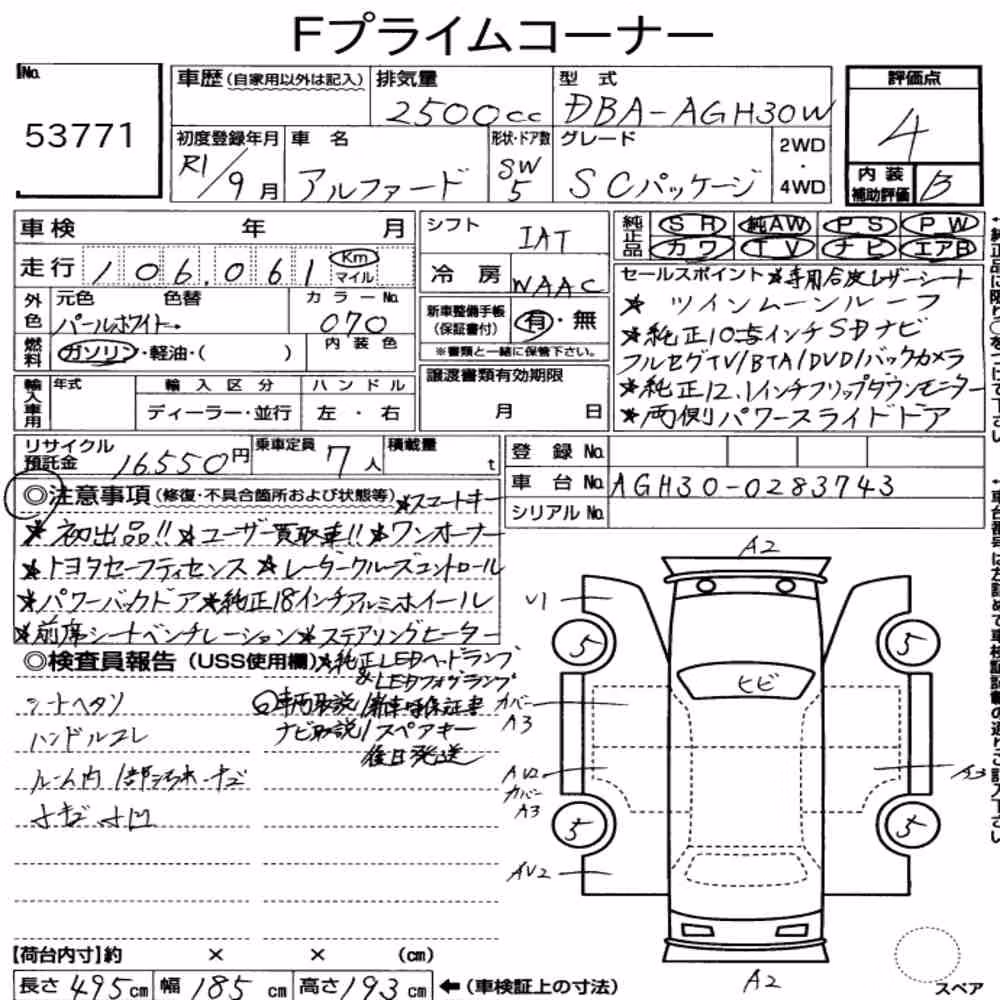 Fプライムコーナー
No.
53771
車歴（自家用以外は記入）
排気量
2500cc
型 式
DBA-AGH30W
評価点
4
初度登録年月
R1/9月
車 名
アルファード
形状・ドア数
SW
5
グレード
SCパッケージ
2WD
・
4WD
内装
補助評価
B
車検 年 月
走行 106,061 Km
マイル
シフト
IAT
冷 房
WAAC
純正品
SR 純AW PS PW
カワ TV ナビ エアB
外色
元色 色替
パールホワイト
カラーNo.
070
燃料
ガソリン・軽油・( )
内装色
新車整備手帳
（保証書付）
有・無
※書類と一緒に保管下さい。
セールスポイント ★専用合皮レザーシート
★ ツインムーンルーフ
★純正10.5インチSDナビ
フルセグTV/BTA/DVD/バックカメラ
★純正12.1インチフリップダウンモニター
★両側パワースライドドア
輸入車用
年式
輸入区分
ディーラー・並行
ハンドル
左・右
譲渡書類有効期限
月 日
リサイクル
預託金 16,550円
乗車定員 7人
積載量 t
登 録 No.
車 台 No. AGH30-0283743
シリアルNo.
◎注意事項（修復・不具合箇所および状態等）★スマートキー
★初出品!! ★ユーザー買取車!! ★ワンオーナー
★トヨタセーフティセンス ★レーダークルーズコントロール
★パワーバックドア ★純正18インチアルミホイール
★前席シートベンチレーション ★ステアリングヒーター
◎検査員報告（USS使用欄）★純正LEDヘッドランプ
&LEDフォグランプ
シートヘタリ
ハンドルコレ
車両取説/新車時保証書
ナビ取説/スペアキー
後日発送
A2
U1
5
5
ヒビ
カバー
A3
AU2
カバー
A3
A3
5
5
AU2
A2
スペア
【荷台内寸】約 × × （cm）
長さ 495cm 幅 185cm 高さ 193cm ←（車検証上の寸法）